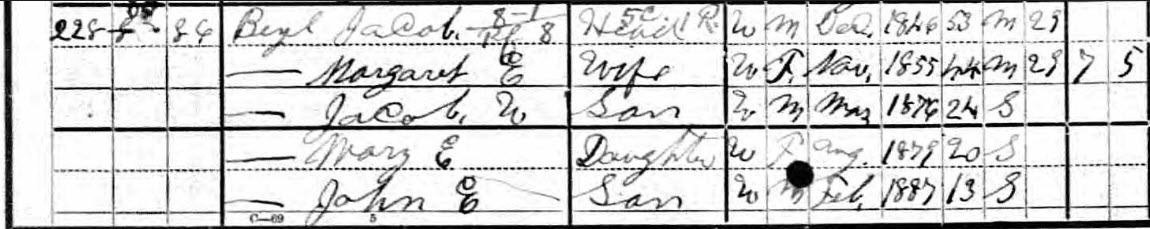 228 86 Beyl Jacob. 8-1 8 Head R. W M Dec. 1846 53 M 29
— Margaret E Wife W F. Nov. 1855 44 M 29 7 5
— Jacob. W Son W M Mar 1876 24 S
— Mary E Daughter W F Aug. 1879 20 S
— John E Son W M Feb. 1887 13 S
C—69 5